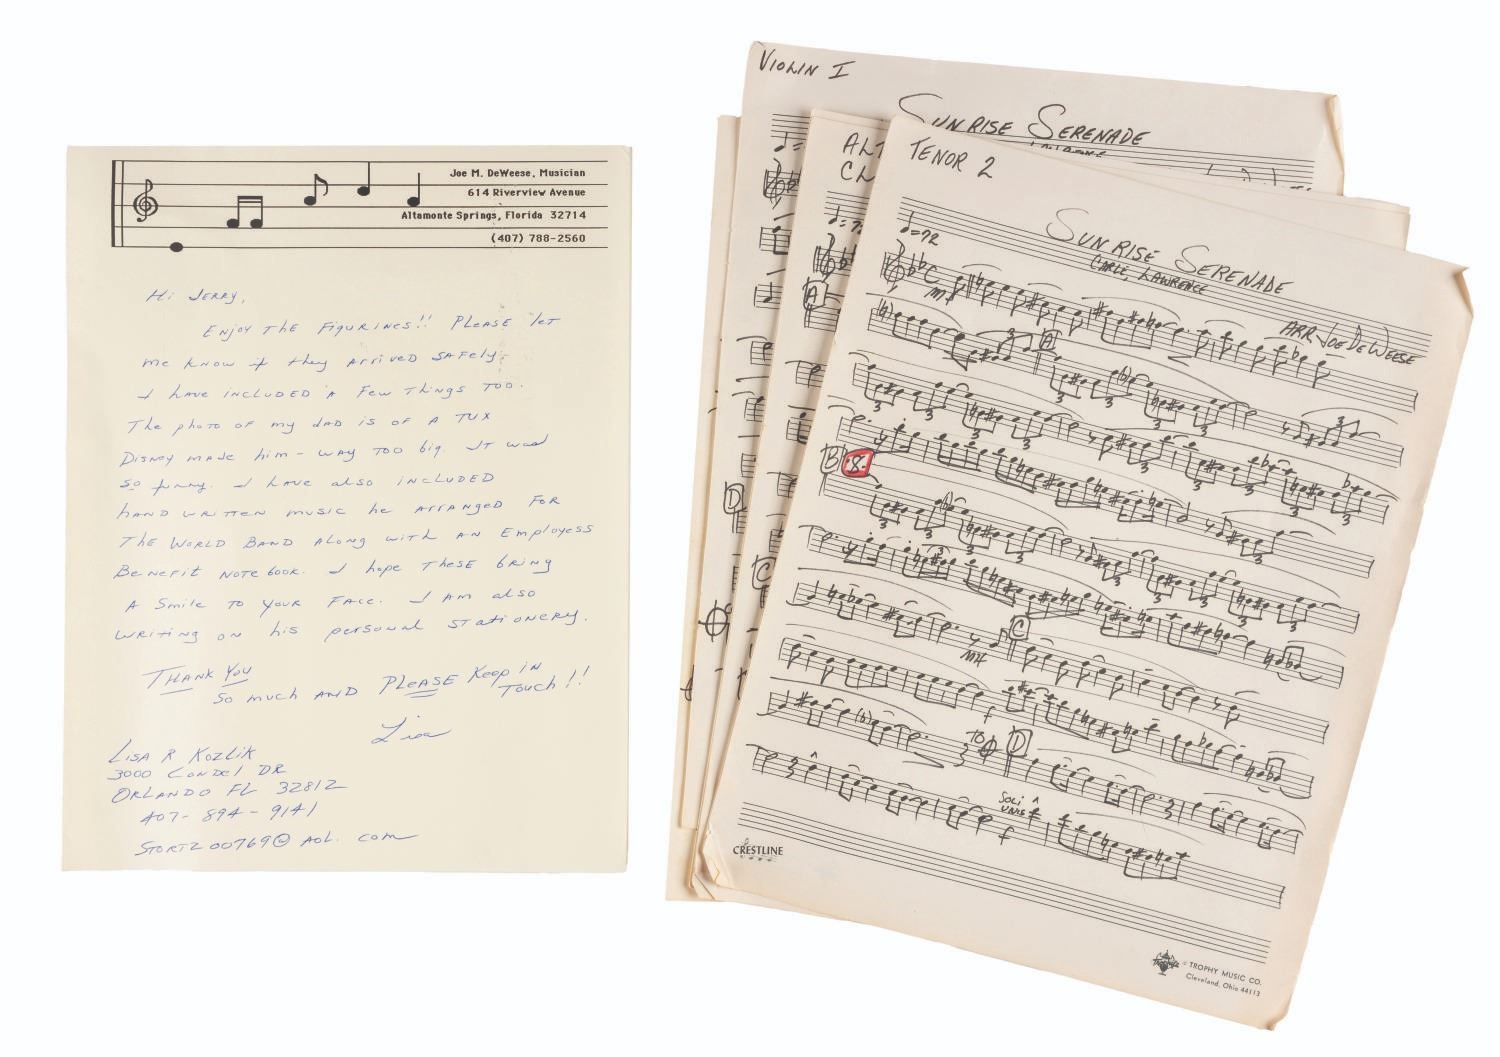 Joe M. DeWeese, Musician
614 Riverview Avenue
Altamonte Springs, Florida 32714
(407) 788-2560
Hi Jerry,
Enjoy the figurines!! Please let
me know if they arrived safely.
I have included a few things too.
The photo of my dad is of a tux
Disney made him - way too big. It was
so funny. I have also included
hand written music he arranged for
the World Band along with an Employess
Benefit notebook. I hope these bring
a smile to your face. I am also
writing on his personal stationery.
Thank you
so much and please keep in
touch!!
Lisa
Lisa R Kozlik
3000 Condel Dr
Orlando FL 32812
407-894-9141
Stortz00769@aol.com
Violin I
Sunrise Serenade
Tenor 2
Sunrise Serenade
Carle, Lawrence
Arr Joe DeWeese
♩=72
mf
3
A
3
3
3
3
3
B
3
3
3
3
3
C
mf
f
TO
D
Soli
Unis
f
CRESTLINE
© TROPHY MUSIC CO.
Cleveland, Ohio 44113
A
D
C